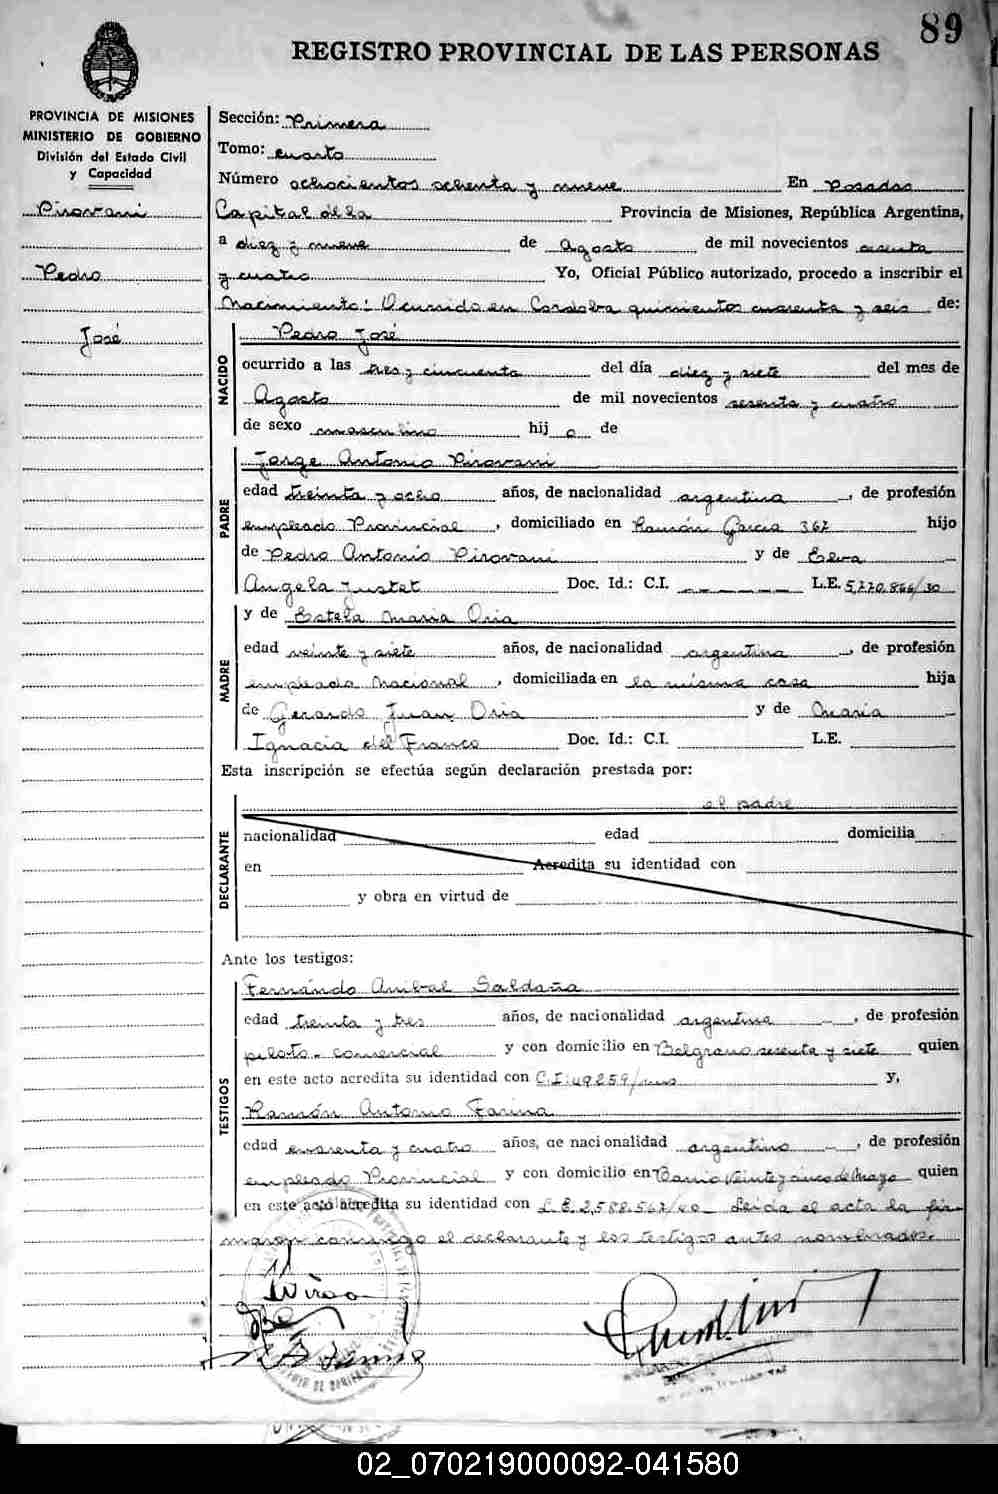 89
REGISTRO PROVINCIAL DE LAS PERSONAS
PROVINCIA DE MISIONES
MINISTERIO DE GOBIERNO
División del Estado Civil
y Capacidad
Pirovani
Pedro
José
Sección: Primera
Tomo: cuarto
Número ochocientos ochenta y nueve En Posadas
Capital de la Provincia de Misiones, República Argentina,
a diez y nueve de Agosto de mil novecientos sesenta
y cuatro Yo, Oficial Público autorizado, procedo a inscribir el
Nacimiento: Ocurrido en Cordoba quinientos cuarenta y seis de:
NACIDO
Pedro José
ocurrido a las tres y cincuenta del día diez y siete del mes de
Agosto de mil novecientos sesenta y cuatro
de sexo masculino hij o de
PADRE
Jorge Antonio Pirovani
edad treinta y ocho años, de nacionalidad argentina, de profesión
empleado Provincial, domiciliado en Ramón Garcia 367 hijo
de Pedro Antonio Pirovani y de Elva
Angela Justet Doc. Id.: C.I. L.E. 5,770.866/30
MADRE
y de Estela Maria Oria
edad veinte y siete años, de nacionalidad argentina, de profesión
empleada Nacional, domiciliada en la misma casa hija
de Gerardo Juan Oria y de Maria
Ignacia del Franco Doc. Id.: C.I. L.E.
Esta inscripción se efectúa según declaración prestada por:
DECLARANTE
el padre
nacionalidad edad domicilia
en Acredita su identidad con
y obra en virtud de
Ante los testigos:
TESTIGOS
Fernándo Anibal Saldaña
edad treinta y tres años, de nacionalidad argentina, de profesión
piloto comercial y con domicilio en Belgrano sesenta y siete quien
en este acto acredita su identidad con C.I: 49259/mns y,
Ramón Antonio Farina
edad cuarenta y cuatro años, de nacionalidad argentino, de profesión
empleado Provincial y con domicilio en Barrio Veinte y cinco de Mayo quien
en este acto acredita su identidad con L.E. 2,588.567/40 Leída el acta la fir-
maron conmigo el declarante y los testigos antes nombrados.
02_070219000092-041580